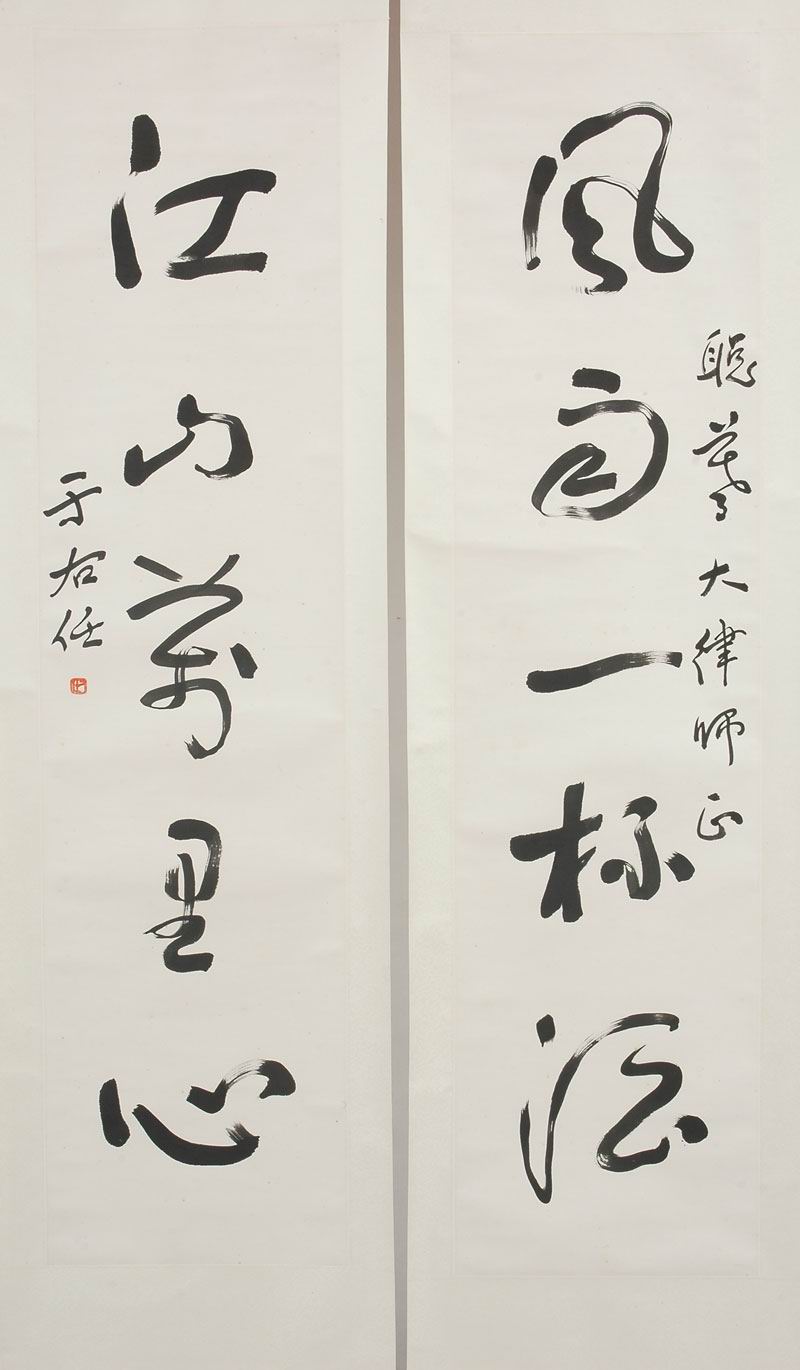 風雨一杯酒
聰彝大律師正
江山萬里心
于右任